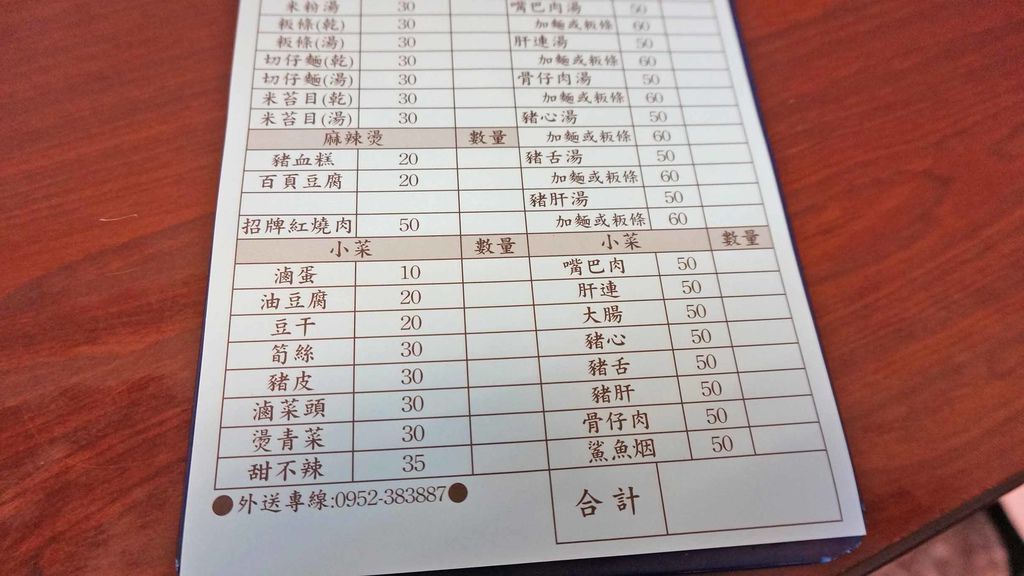 米粉湯 30 嘴巴肉湯 50
粄條(乾) 30 加麵或粄條 60
粄條(湯) 30 肝連湯 50
切仔麵(乾) 30 加麵或粄條 60
切仔麵(湯) 30 骨仔肉湯 50
米苔目(乾) 30 加麵或粄條 60
米苔目(湯) 30 豬心湯 50
麻辣燙 數量 加麵或粄條 60
豬血糕 20 豬舌湯 50
百頁豆腐 20 加麵或粄條 60
豬肝湯 50
招牌紅燒肉 50 加麵或粄條 60
小菜 數量 小菜 數量
滷蛋 10 嘴巴肉 50
油豆腐 20 肝連 50
豆干 20 大腸 50
筍絲 30 豬心 50
豬皮 30 豬舌 50
滷菜頭 30 豬肝 50
燙青菜 30 骨仔肉 50
甜不辣 35 鯊魚烟 50
●外送專線:0952-383887●
合計